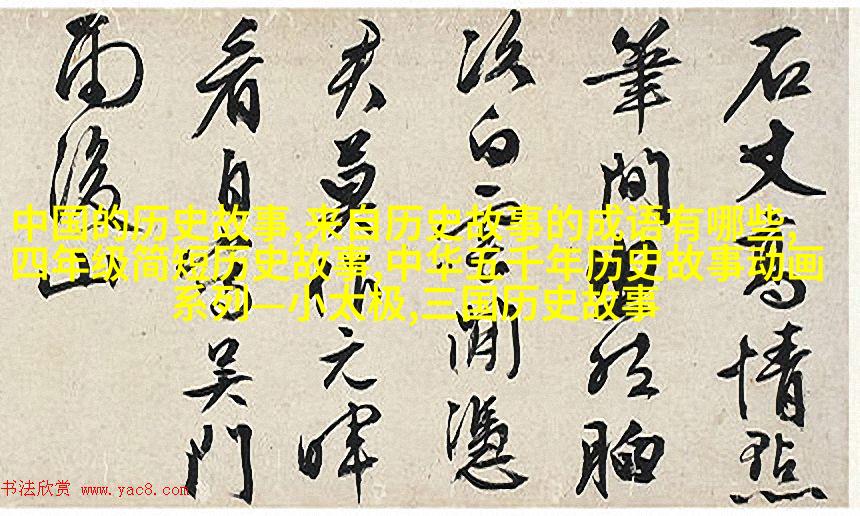 石丈高情點
筆間煙江胸
次白雲閒憑
君莫作元暉
看自寫吴門
雨後山
中国的历史故事,来自历史故事的成语有哪些,
四年级简短历史故事,中华五千年历史故事动画
系列—小太极,三国历史故事
书法欣赏 www.yac8.com